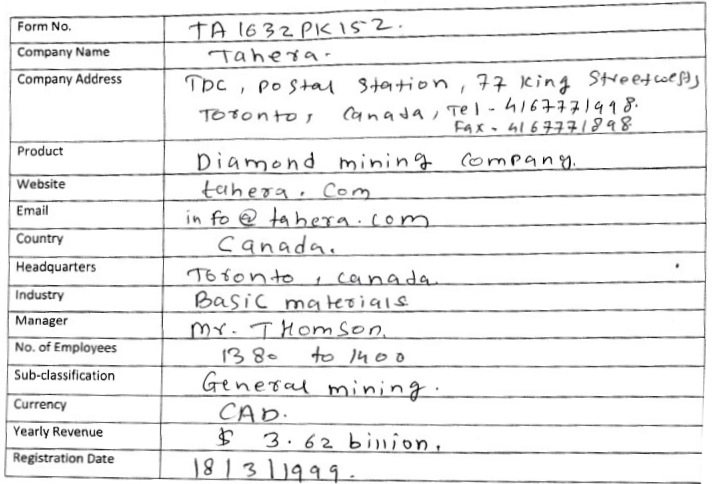 Form No. TA1632PK152.
Company Name Tahera.
Company Address TDC, postal station, 77 King Street(west),
Toronto, Canada, Tel - 4167771998.
Fax - 4167771898
Product Diamond mining company.
Website tahera.com
Email info@tahera.com
Country Canada.
Headquarters Toronto, canada.
Industry Basic materials
Manager Mr. THomson.
No. of Employees 1380 to 1400
Sub-classification General mining.
Currency CAD.
Yearly Revenue $ 3.62 billion.
Registration Date 18|3|1999.